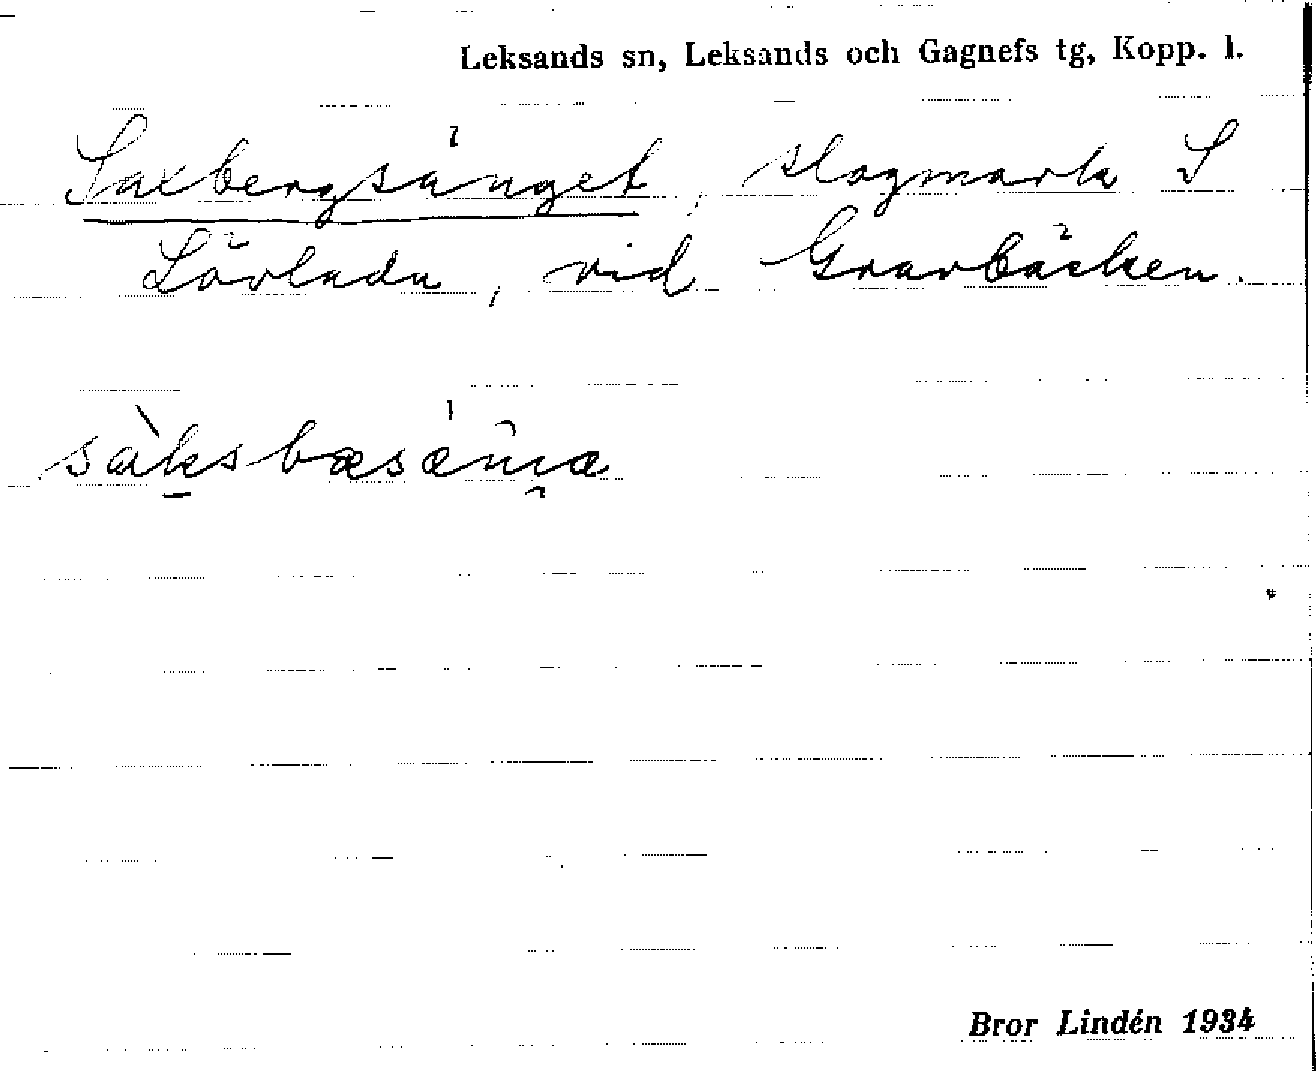 Leksands sn, Leksands och Gagnefs tg, Kopp. l.
Saxbergsänget, slogmark S
Lövlada, vid Gravbäcken.
Bror Lindén 1934